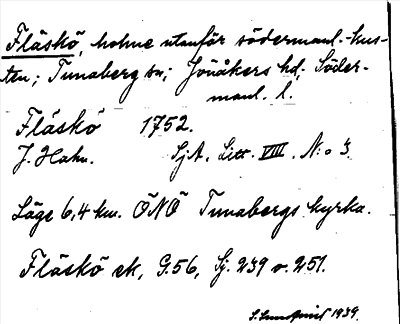 Fläskö, holme utanför södermanl.-kus-
ten; Tunaberg sn; Jönåkers hd; Söder-
manl. l.
Fläskö 1752.
J. Hahn. SjA, Litt. VIII. N:o 3.
Läge 6,4 km. ÖNÖ Tunabergs kyrka.
Fläskö ek, G.56, Sj. 239 o. 251.
1939.